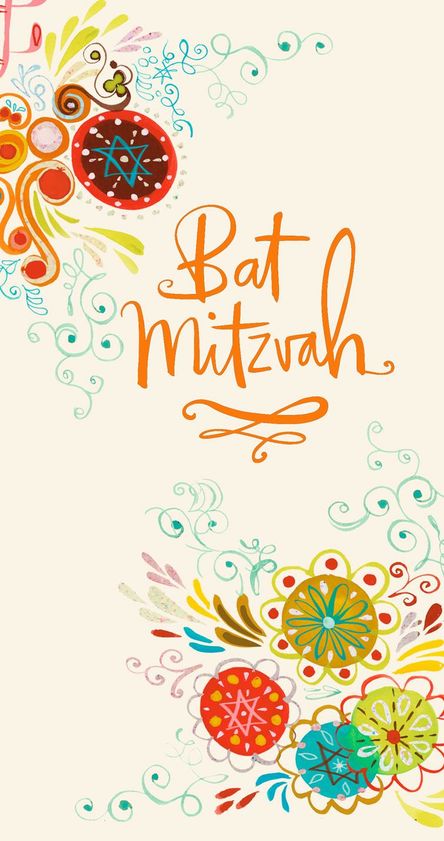 Bat
Mitzvah